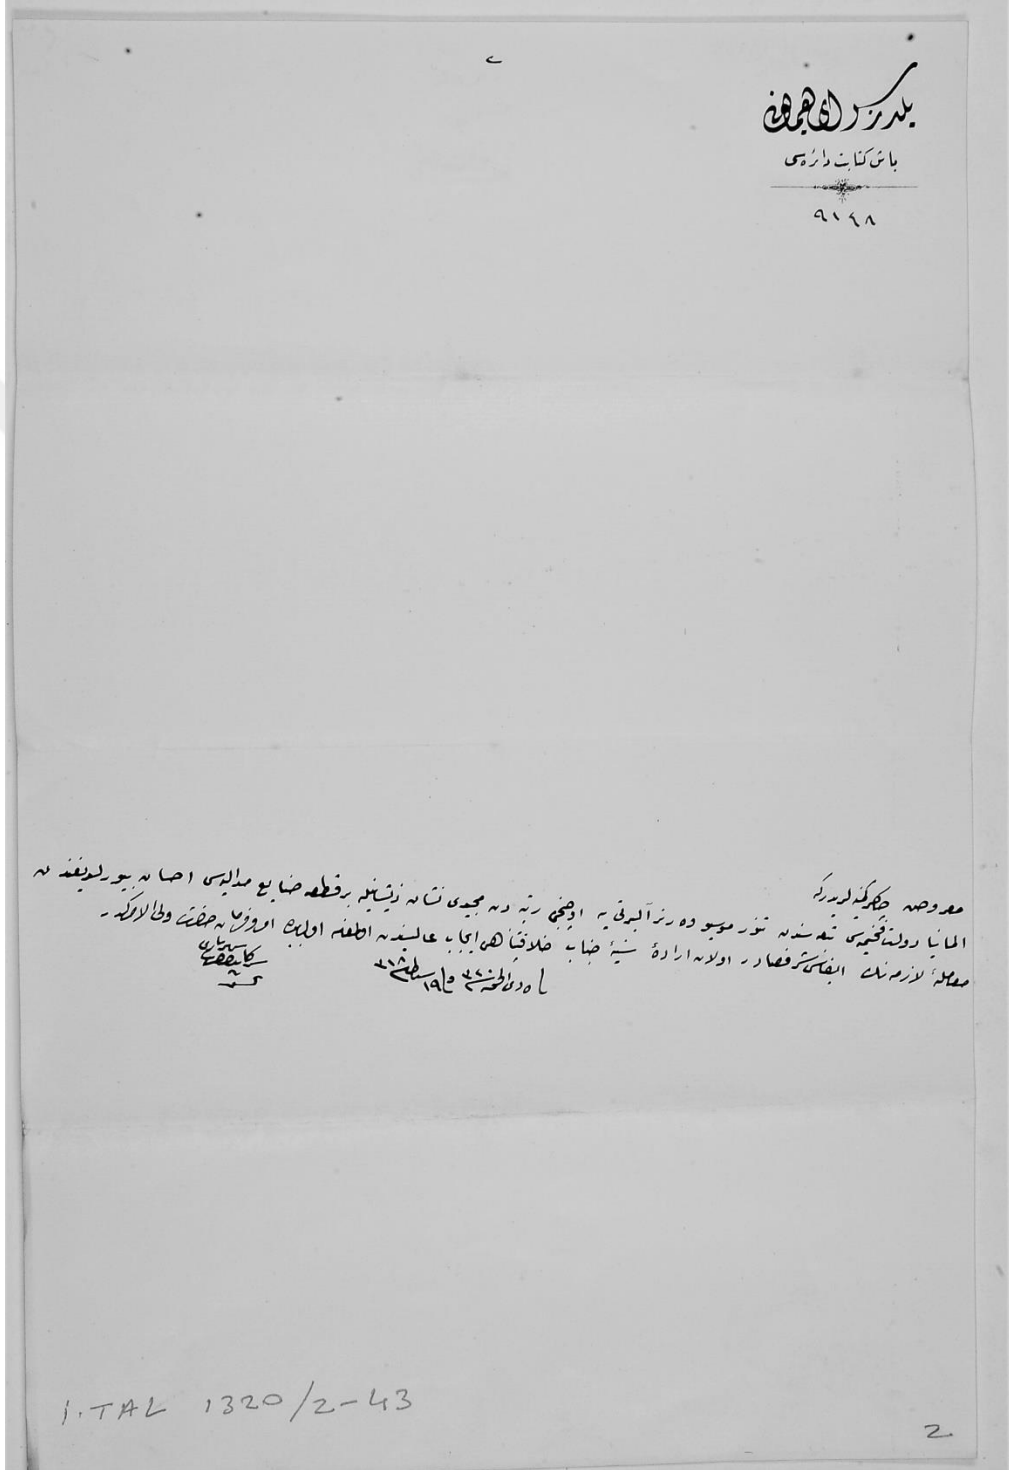 يلديز سراى همايونى
باش كتابت دائره‌سى
٩١٤٨
معروض چاكر كمينه‌لريدركه
المانيا دولت فخيمه‌سى تبعه‌سندن تنور موسيو ده رنز آلبرتى يه اوچنجى رتبه‌دن مجيدى نشان ذيشانيله بر قطعه صنايع مداليه‌سى احسان بيورلديغندن
معامله لازمه‌نك ايفاسى شرفصادر اولان اراده سنيه جناب خلافتپناهى ايجاب عاليسندن اولمغله اولبابده امر و فرمان حضرت ولى الامركدر
فى ٥ ذى الحجه ٣٢٠ و فى ١٩ شباط ٣١٨
سركاتب حضرت شهريارى
تحسين
I.TAL 1320/2-43
2